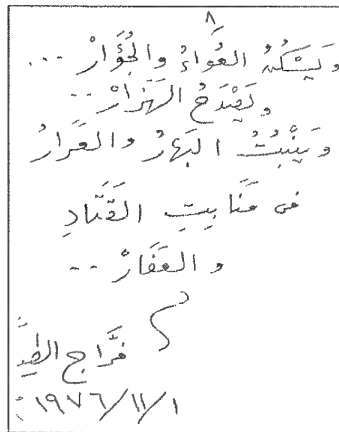 ٨
وَيَسْكُنُ العُواءُ والجُؤَارْ ...
وَيَصْدَحُ الهَزَارْ ..
وَيَنْبُتُ البَهارُ والعَرَارُ
فى مَنَابِتِ القَتَادِ
والقَفَارْ ..
فرَّاج الطيِّ
١٩٧٦/١١/١